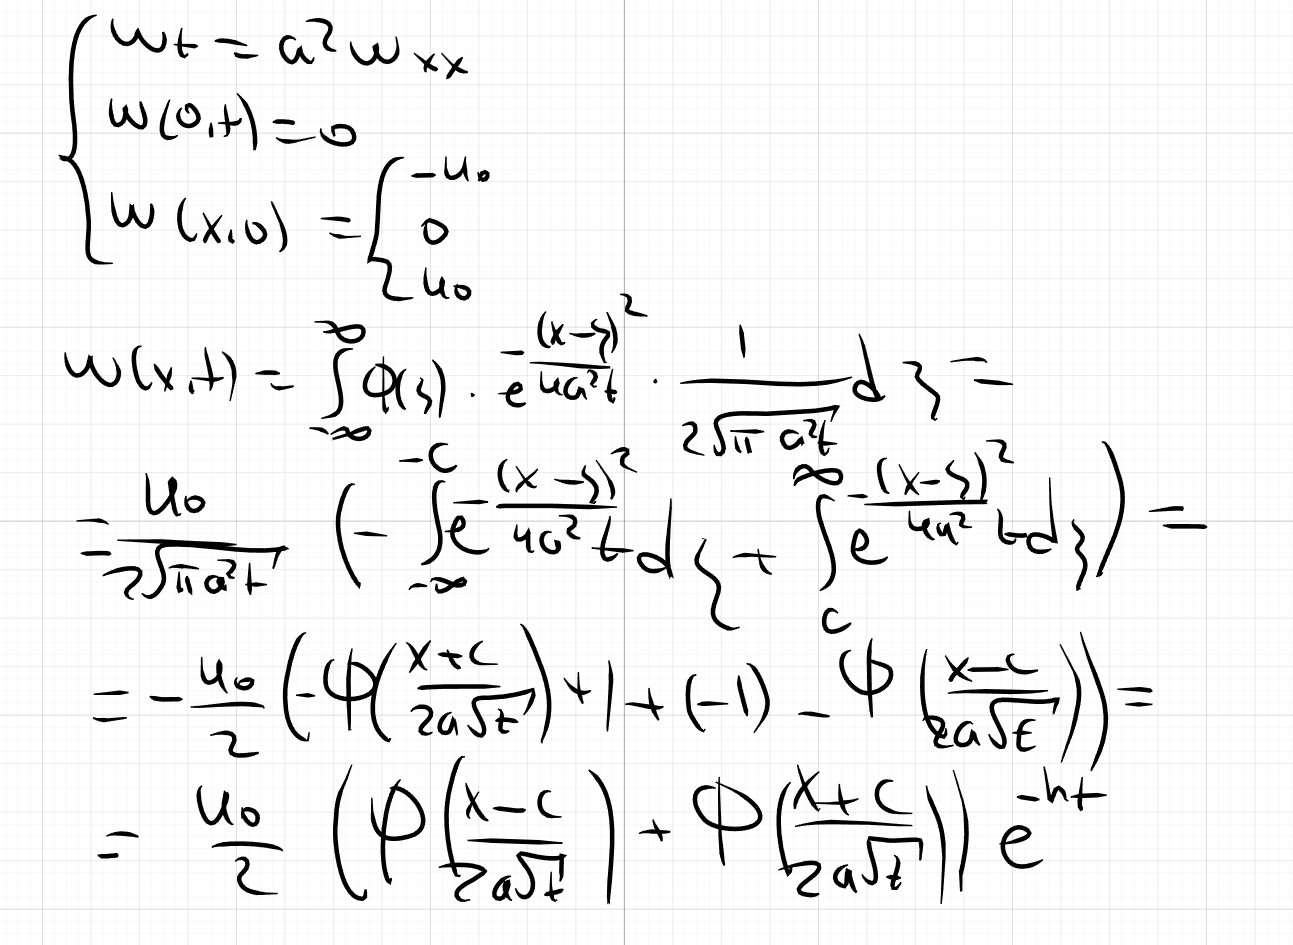 { w_t = a² w_xx
w(0,t) = 0
w(x,0) = { -u₀
0
u₀
w(x,t) = ∫_{-∞}^{∞} φ(ξ) · e^{-(x-ξ)²/4a²t} · 1/(2√(πa²t)) dξ =
= u₀/(2√(πa²t)) (-∫_{-∞}^{-c} e^{-(x-ξ)²/4a²t} dξ + ∫_{c}^{∞} e^{-(x-ξ)²/4a²t} dξ) =
= -u₀/2 (-Φ((x+c)/(2a√t)) + 1 + (-1) - Φ((x-c)/(2a√t))) =
= u₀/2 (Φ((x-c)/(2a√t)) + Φ((x+c)/(2a√t))) e^{-ht}